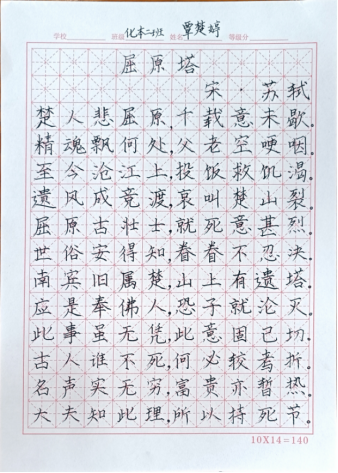 学校 班级 化本二班 姓名 覃楚婷 等级分
屈原塔
宋·苏轼
楚人悲屈原,千载意未歇。
精魂飘何处,父老空哽咽。
至今沧江上,投饭救饥渴。
遗风成竞渡,哀叫楚山裂。
屈原古壮士,就死意甚烈。
世俗安得知,眷眷不忍决。
南宾旧属楚,山上有遗塔。
应是奉佛人,恐子就沦灭。
此事虽无凭,此意固已切。
古人谁不死,何必较考折。
名声实无穷,富贵亦暂热。
大夫知此理,所以持死节。
10X14=140